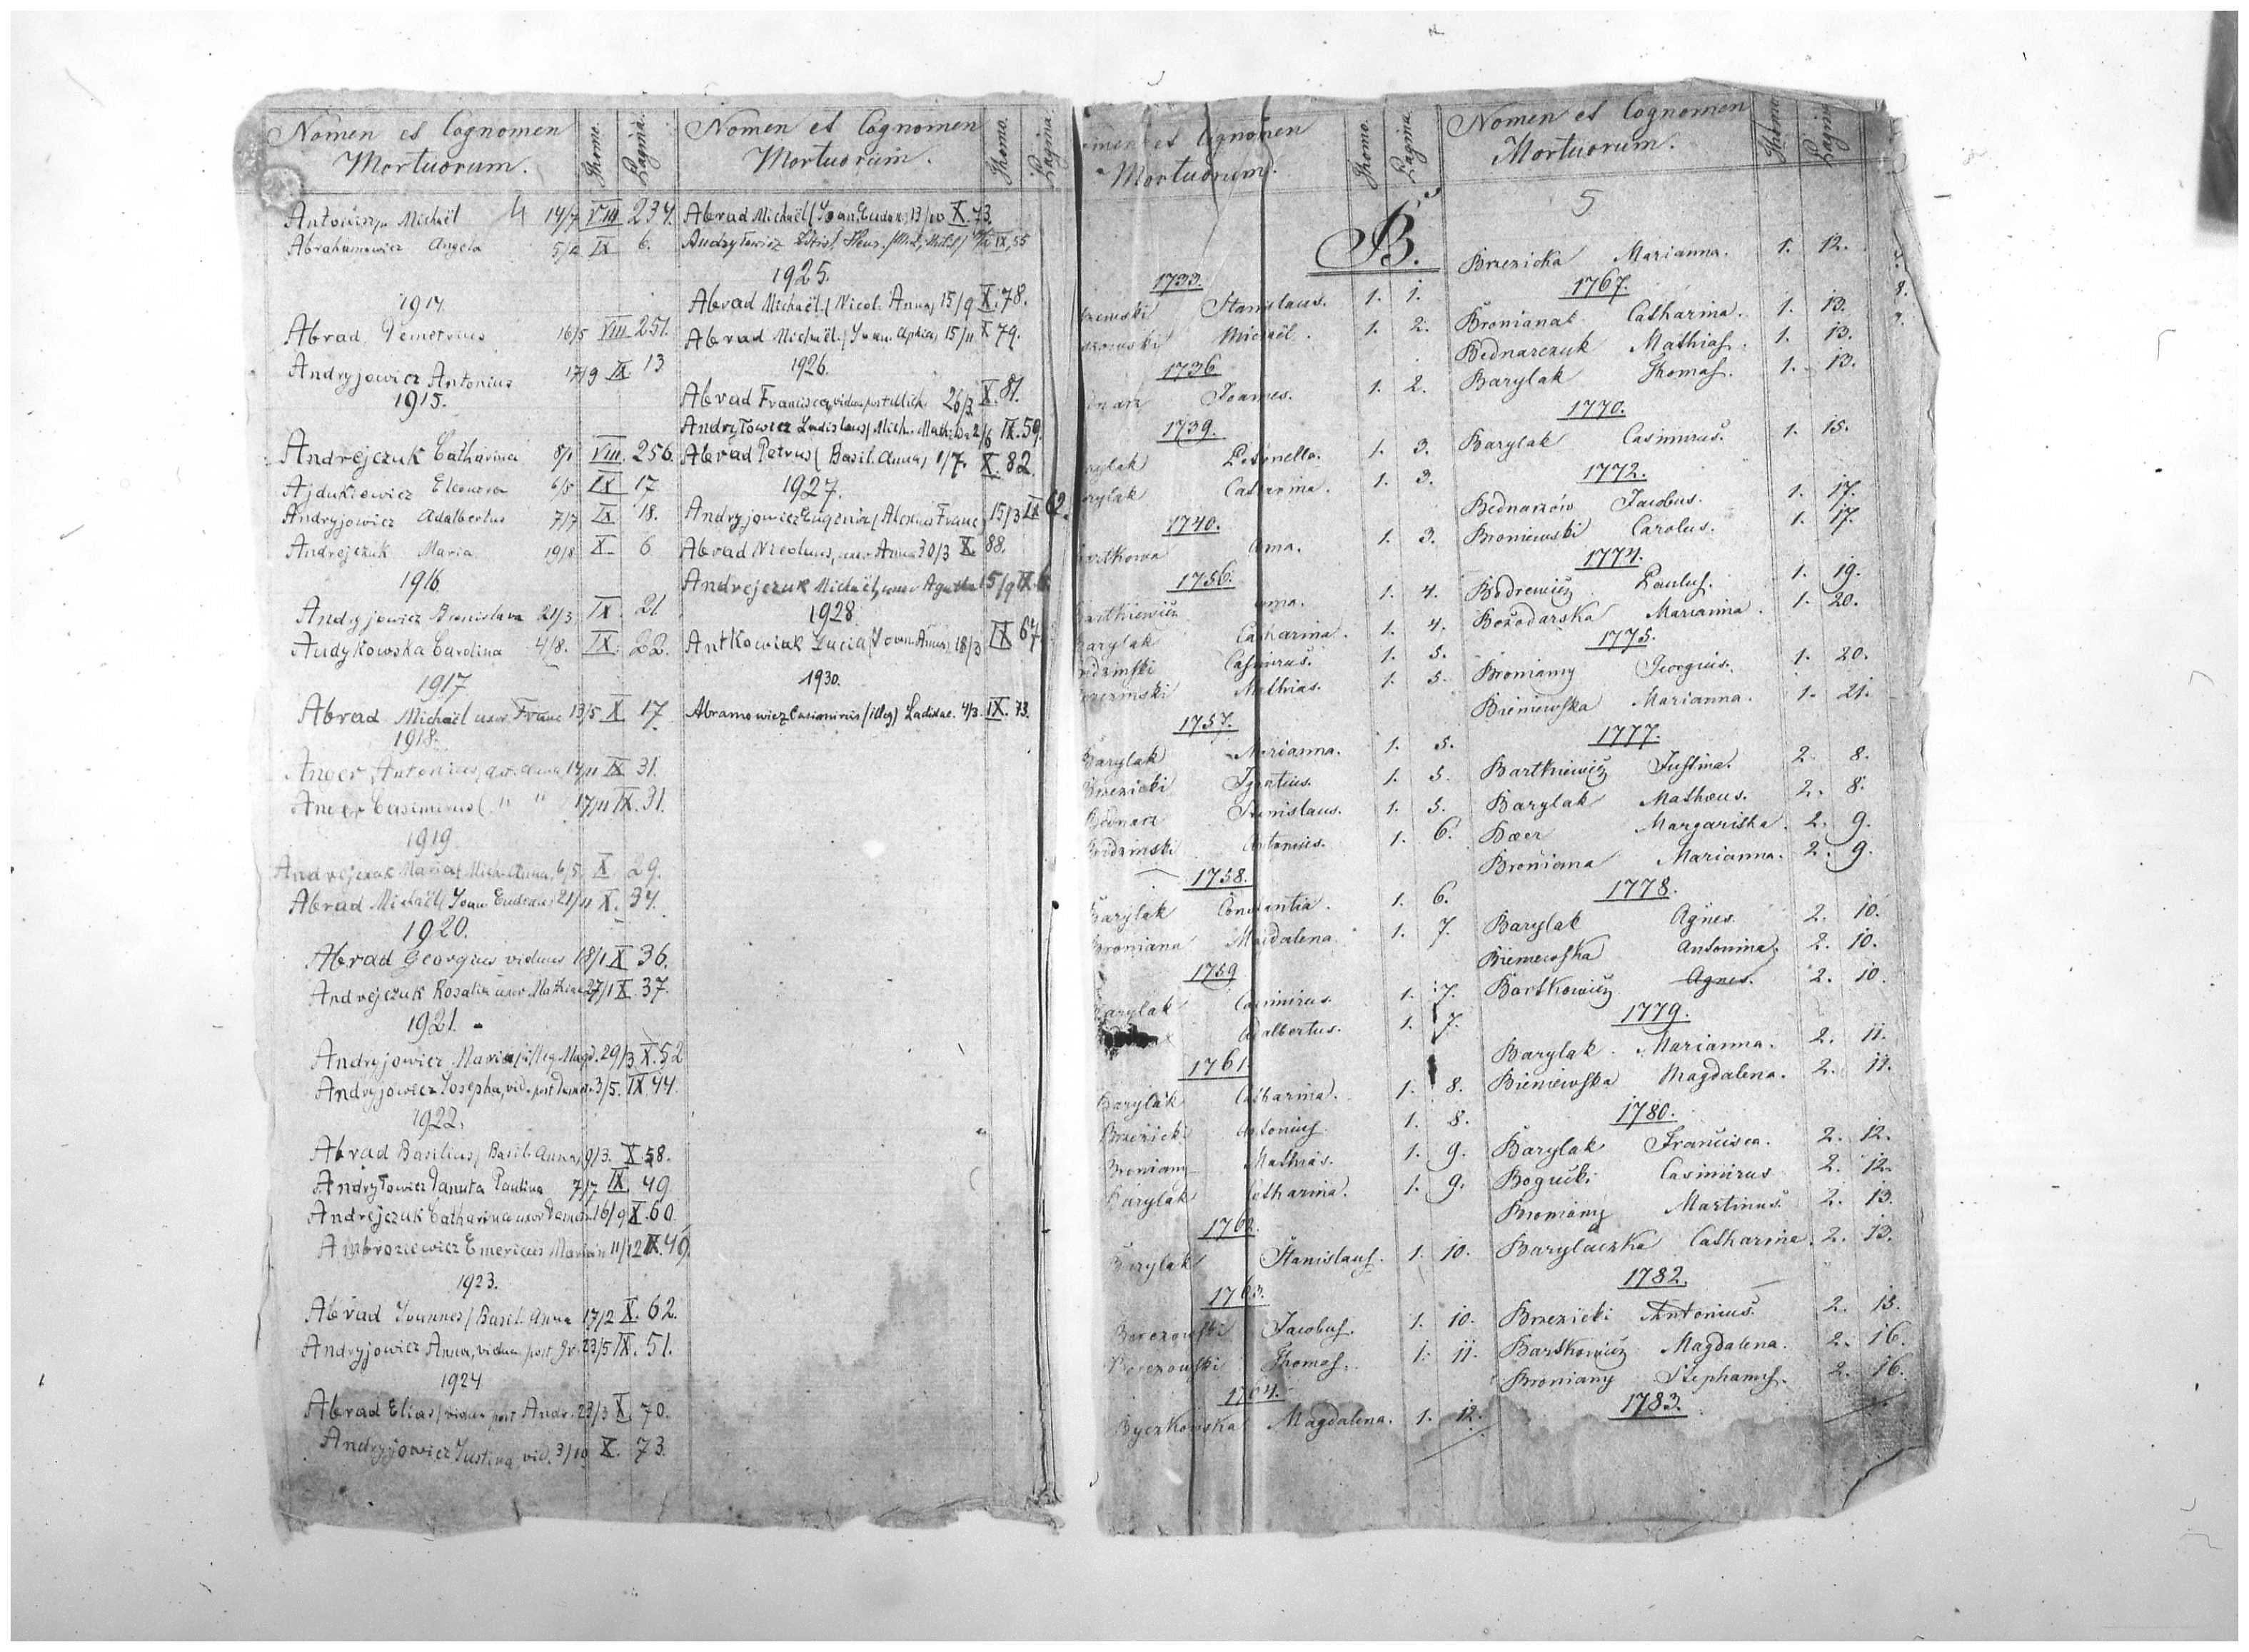 Nomen et Cognomen
Mortuorum.
Thomo.
Pagina.
4
Michaël 14/7 VIII 234.
Abrahamowicz Angela 5/2 IX 6.
1914.
Abrad Demetrius 16/5 VIII 251.
Andryjowicz Antonius 17/9 IX 13
1915.
Andrejczuk Catharina 8/1 VIII. 256.
Ajdukiewicz Eleonora 6/5 IX 17
Andryjowicz Adalbertus 7/7 IX 18.
Andrejczuk Maria 19/8 X 6
1916
Andryjowicz Bronislava 21/3 IX. 21.
Audykowska Carolina 4/8. IX. 22.
1917
Abrad Michaël uxor. Franc 13/5 X 17.
1918.
Anger Antonius, 17/11 IX 31.
Anger Casimirus ( " " 17/11 IX. 31.
1919
Andrejczuk Maria 6/5 X 29.
Abrad Michaël/ Joan 21/11 X. 34.
1920.
Abrad Georgius viduus 18/1 X 36.
Andrejczuk Rosalia uxor 27/1 X 37.
1921.
Andryjowicz Maria/ illeg. Magd. 29/3 X. 52
Andryjowicz Josepha, vid. post 3/5. IX. 44.
1922.
Abrad Basilius/ Basil. Anna, 9/3. X 58.
Andryłowicz Danuta Paulina 7/7 IX. 49
Andrejczuk Catharina uxor 16/9 X. 60.
Ambroziewicz Emericus Marian 11/12 IX. 49.
1923.
Abrad Joannes/ Basil. Anna 17/2 X. 62.
Andryjowicz Anna, vidua post Gr. 23/5 IX. 51.
1924
Abrad Elias/ post Andr. 23/3 X. 70.
Andryjowicz Justina, vid. 3/10 X. 73.
Nomen et Cognomen
Mortuorum.
Thomo.
Pagina
Abrad Michaël ( Joan. 13/10 X. 73.
Andryłowicz IX, 55
1925.
Abrad Michaël. ( Nicol. Anna, 15/9 X. 78.
Abrad Michaël. / Joan. 15/11 X 79.
1926.
Abrad Francisca, vidua post Mich. 26/3 X. 81.
Andryłowicz Ladislaus/ Mich. 2/6 IX. 59.
Abrad Petrus ( Basil. Anna, 1/7. X. 82.
1927.
Andryjowicz Eugenia ( Franc 15/3 IX 62.
Abrad Nicolaus, uxor Anna 30/3 X. 88.
Andrejczuk Michaël, uxor Agatha 15/9 IX
1928
Antkowiak Lucia/ Joan. Anna, 18/3 IX 67
1930.
Abramowicz Casimirus (illeg) Ladislae. 4/3. IX. 73.
Cognomen
Mortuorum.
Thomo.
Pagina.
B.
1733.
Stanislaus. 1. 1.
Michaël. 1. 2.
1736.
Joannes. 1. 2.
1739.
Petronella. 1. 3.
Catharina. 1. 3.
1740.
1. 3.
1756.
1. 4.
Barylak Catharina. 1. 4.
Casimirus. 1. 5.
Mathias. 1. 5.
1757.
Barylak Marianna. 1. 5.
Brzezicki Ignatius. 1. 5.
Bednarz Stanislaus. 1. 5.
Antonius. 1. 6.
1758.
Barylak Constantia. 1. 6.
Broniana Magdalena. 1. 7.
1759
Barylak Casimirus. 1. 7.
Adalbertus. 1. 7.
1761.
Barylak Catharina. 1. 8.
Brzezicki Antonius. 1. 8.
Broniany Mathias. 1. 9.
Barylak Catharina. 1. 9.
1762.
Barylak Stanislaus. 1. 10.
1763.
Berezowski Jacobus. 1. 10.
Berezowski Thomas. 1. 11.
1764.
Byczkowska Magdalena. 1. 12.
Nomen et Cognomen
Mortuorum.
Thomo
Pagina
5
Brzezicka Marianna. 1. 12.
1767.
Catharina. 1. 13.
Bednarczuk Mathias. 1. 13.
Barylak Thomas. 1. 13.
1770.
Barylak Casimirus. 1. 15.
1772.
Bednarzów Jacobus. 1. 17.
Broniewski Carolus. 1. 17.
1774.
Paulus. 1. 19.
Marianna. 1. 20.
1775.
Broniany Georgius. 1. 20.
Bieniewska Marianna. 1. 21.
1777.
Bartkiewicz Justina. 2. 8.
Barylak Mathæus. 2. 8.
Baer Margaritha. 2. 9.
Broniana Marianna. 2. 9.
1778.
Barylak Agnes. 2. 10.
Bieniewska Antonina. 2. 10.
Bartkowicz Agnes. 2. 10.
1779.
Barylak Marianna. 2. 11.
Bieniewska Magdalena. 2. 11.
1780.
Barylak Francisca. 2. 12.
Bogucki Casimirus 2. 12.
Broniany Martinus. 2. 13.
Barylaczka Catharina. 2. 13.
1782.
Brzezicki Antonius. 2. 15.
Bartkowicz Magdalena. 2. 16.
Broniany Stephanus. 2. 16.
1783.